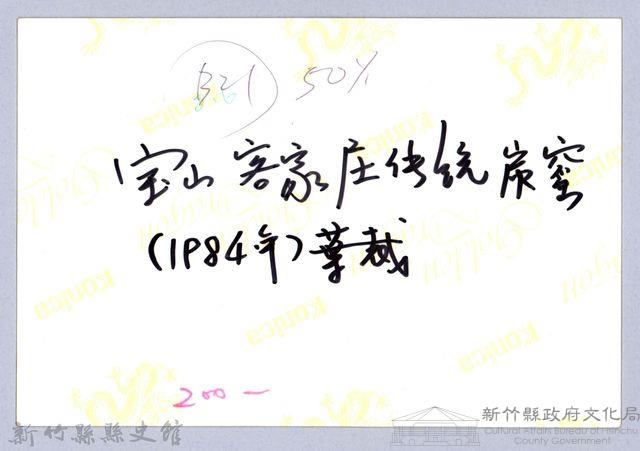 B21 50%
宝山客家庄传统炭窑
(1984年)葉裁
200-
Konica
Golden Dragon
新竹縣縣史館
新竹縣政府文化局
Cultural Affairs Bureau of Hsinchu
County Government